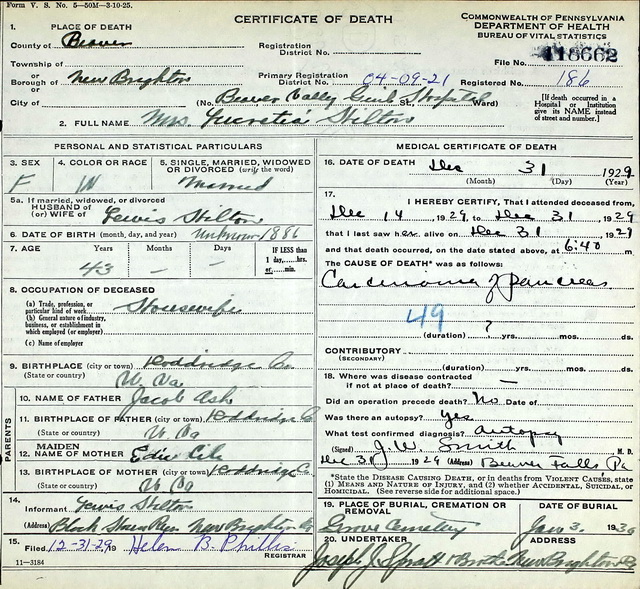 Form V. S. No. 5—50M—3-10-25.
CERTIFICATE OF DEATH
COMMONWEALTH OF PENNSYLVANIA
DEPARTMENT OF HEALTH
BUREAU OF VITAL STATISTICS
1. PLACE OF DEATH
County of Beaver
Registration District No.
File No. 118662
Township of
or
Borough of New Brighton
Primary Registration District No. 04-09-21
Registered No. 186
or
City of
(No. Beaver Valley Genl Hospital St. Ward)
[If death occurred in a Hospital or Institution give its NAME instead of street and number.]
2. FULL NAME Mrs. Lucretia Stilton
PERSONAL AND STATISTICAL PARTICULARS
3. SEX F
4. COLOR OR RACE W
5. SINGLE, MARRIED, WIDOWED OR DIVORCED (write the word) Married
5a. If married, widowed, or divorced
HUSBAND of
(or) WIFE of Lewis Stilton
6. DATE OF BIRTH (month, day, and year) Unknown 1886
7. AGE Years Months Days IF LESS than 1 day,....hrs. or....min.
43 — —
8. OCCUPATION OF DECEASED
(a) Trade, profession, or particular kind of work Housewife
(b) General nature of industry, business, or establishment in which employed (or employer)
(c) Name of employer
9. BIRTHPLACE (city or town) Doddridge Co.
(State or country) W. Va
PARENTS
10. NAME OF FATHER Jacob Ash
11. BIRTHPLACE OF FATHER (city or town) Doddridge C
(State or country) W. Va
12. MAIDEN NAME OF MOTHER
13. BIRTHPLACE OF MOTHER (city or town) Doddridge C.
(State or country) W. Va
14. Informant Lewis Stilton
(Address) Block House Run New Brighton
15. Filed 12-31-29 19 Helen B. Phillis REGISTRAR
11—3184
MEDICAL CERTIFICATE OF DEATH
16. DATE OF DEATH Dec 31 1929
(Month) (Day) (Year)
17. I HEREBY CERTIFY, That I attended deceased from,
Dec 14, 1929, to Dec 31, 1929
that I last saw her alive on Dec 31, 1929
and that death occurred, on the date stated above, at 6:40 m.
The CAUSE OF DEATH* was as follows:
Carcinoma of Pancreas
49
(duration) ? yrs. mos. ds.
CONTRIBUTORY
(SECONDARY)
(duration) yrs. mos. ds.
18. Where was disease contracted
if not at place of death? —
Did an operation precede death? No Date of
Was there an autopsy? yes
What test confirmed diagnosis? autopsy
(Signed) J. W. Smith M. D.
Dec 31, 1929 (Address) Beaver Falls Pa
*State the DISEASE CAUSING DEATH, or in deaths from VIOLENT CAUSES, state (1) MEANS AND NATURE OF INJURY, and (2) whether ACCIDENTAL, SUICIDAL, or HOMICIDAL. (See reverse side for additional space.)
19. PLACE OF BURIAL, CREMATION OR REMOVAL
Grove Cemetery
DATE OF BURIAL
Jan 3, 1930
20. UNDERTAKER
Joseph J. Spratt
ADDRESS
New Brighton Pa